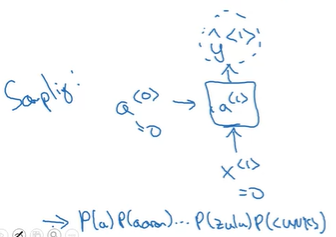 ŷ<1>
Sampling:
a<0> → a<1>
=0
x<1>
=0
→ P(a) P(aaron) ... P(zulu) P(<UNK>)